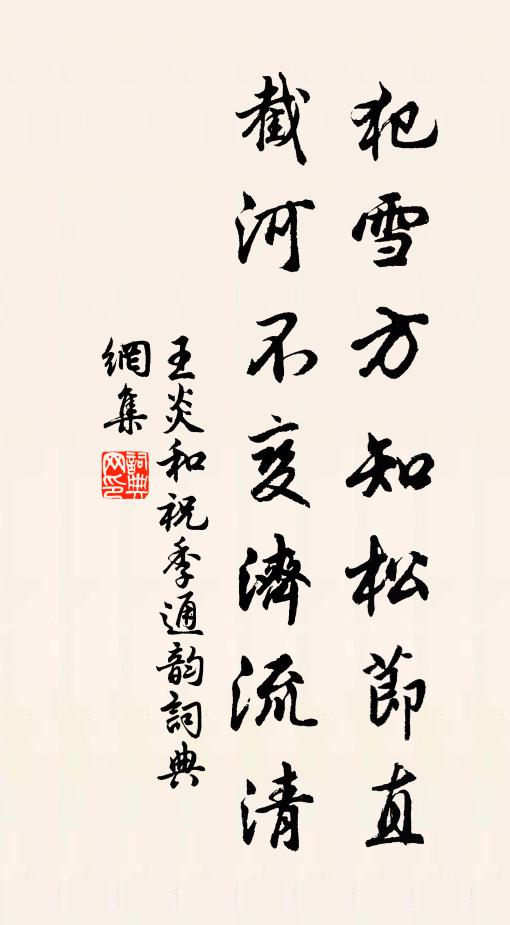 犯雪方知松節直
截河不变濟流清
王炎和祝季通韵詞典
網集
詞典
网印